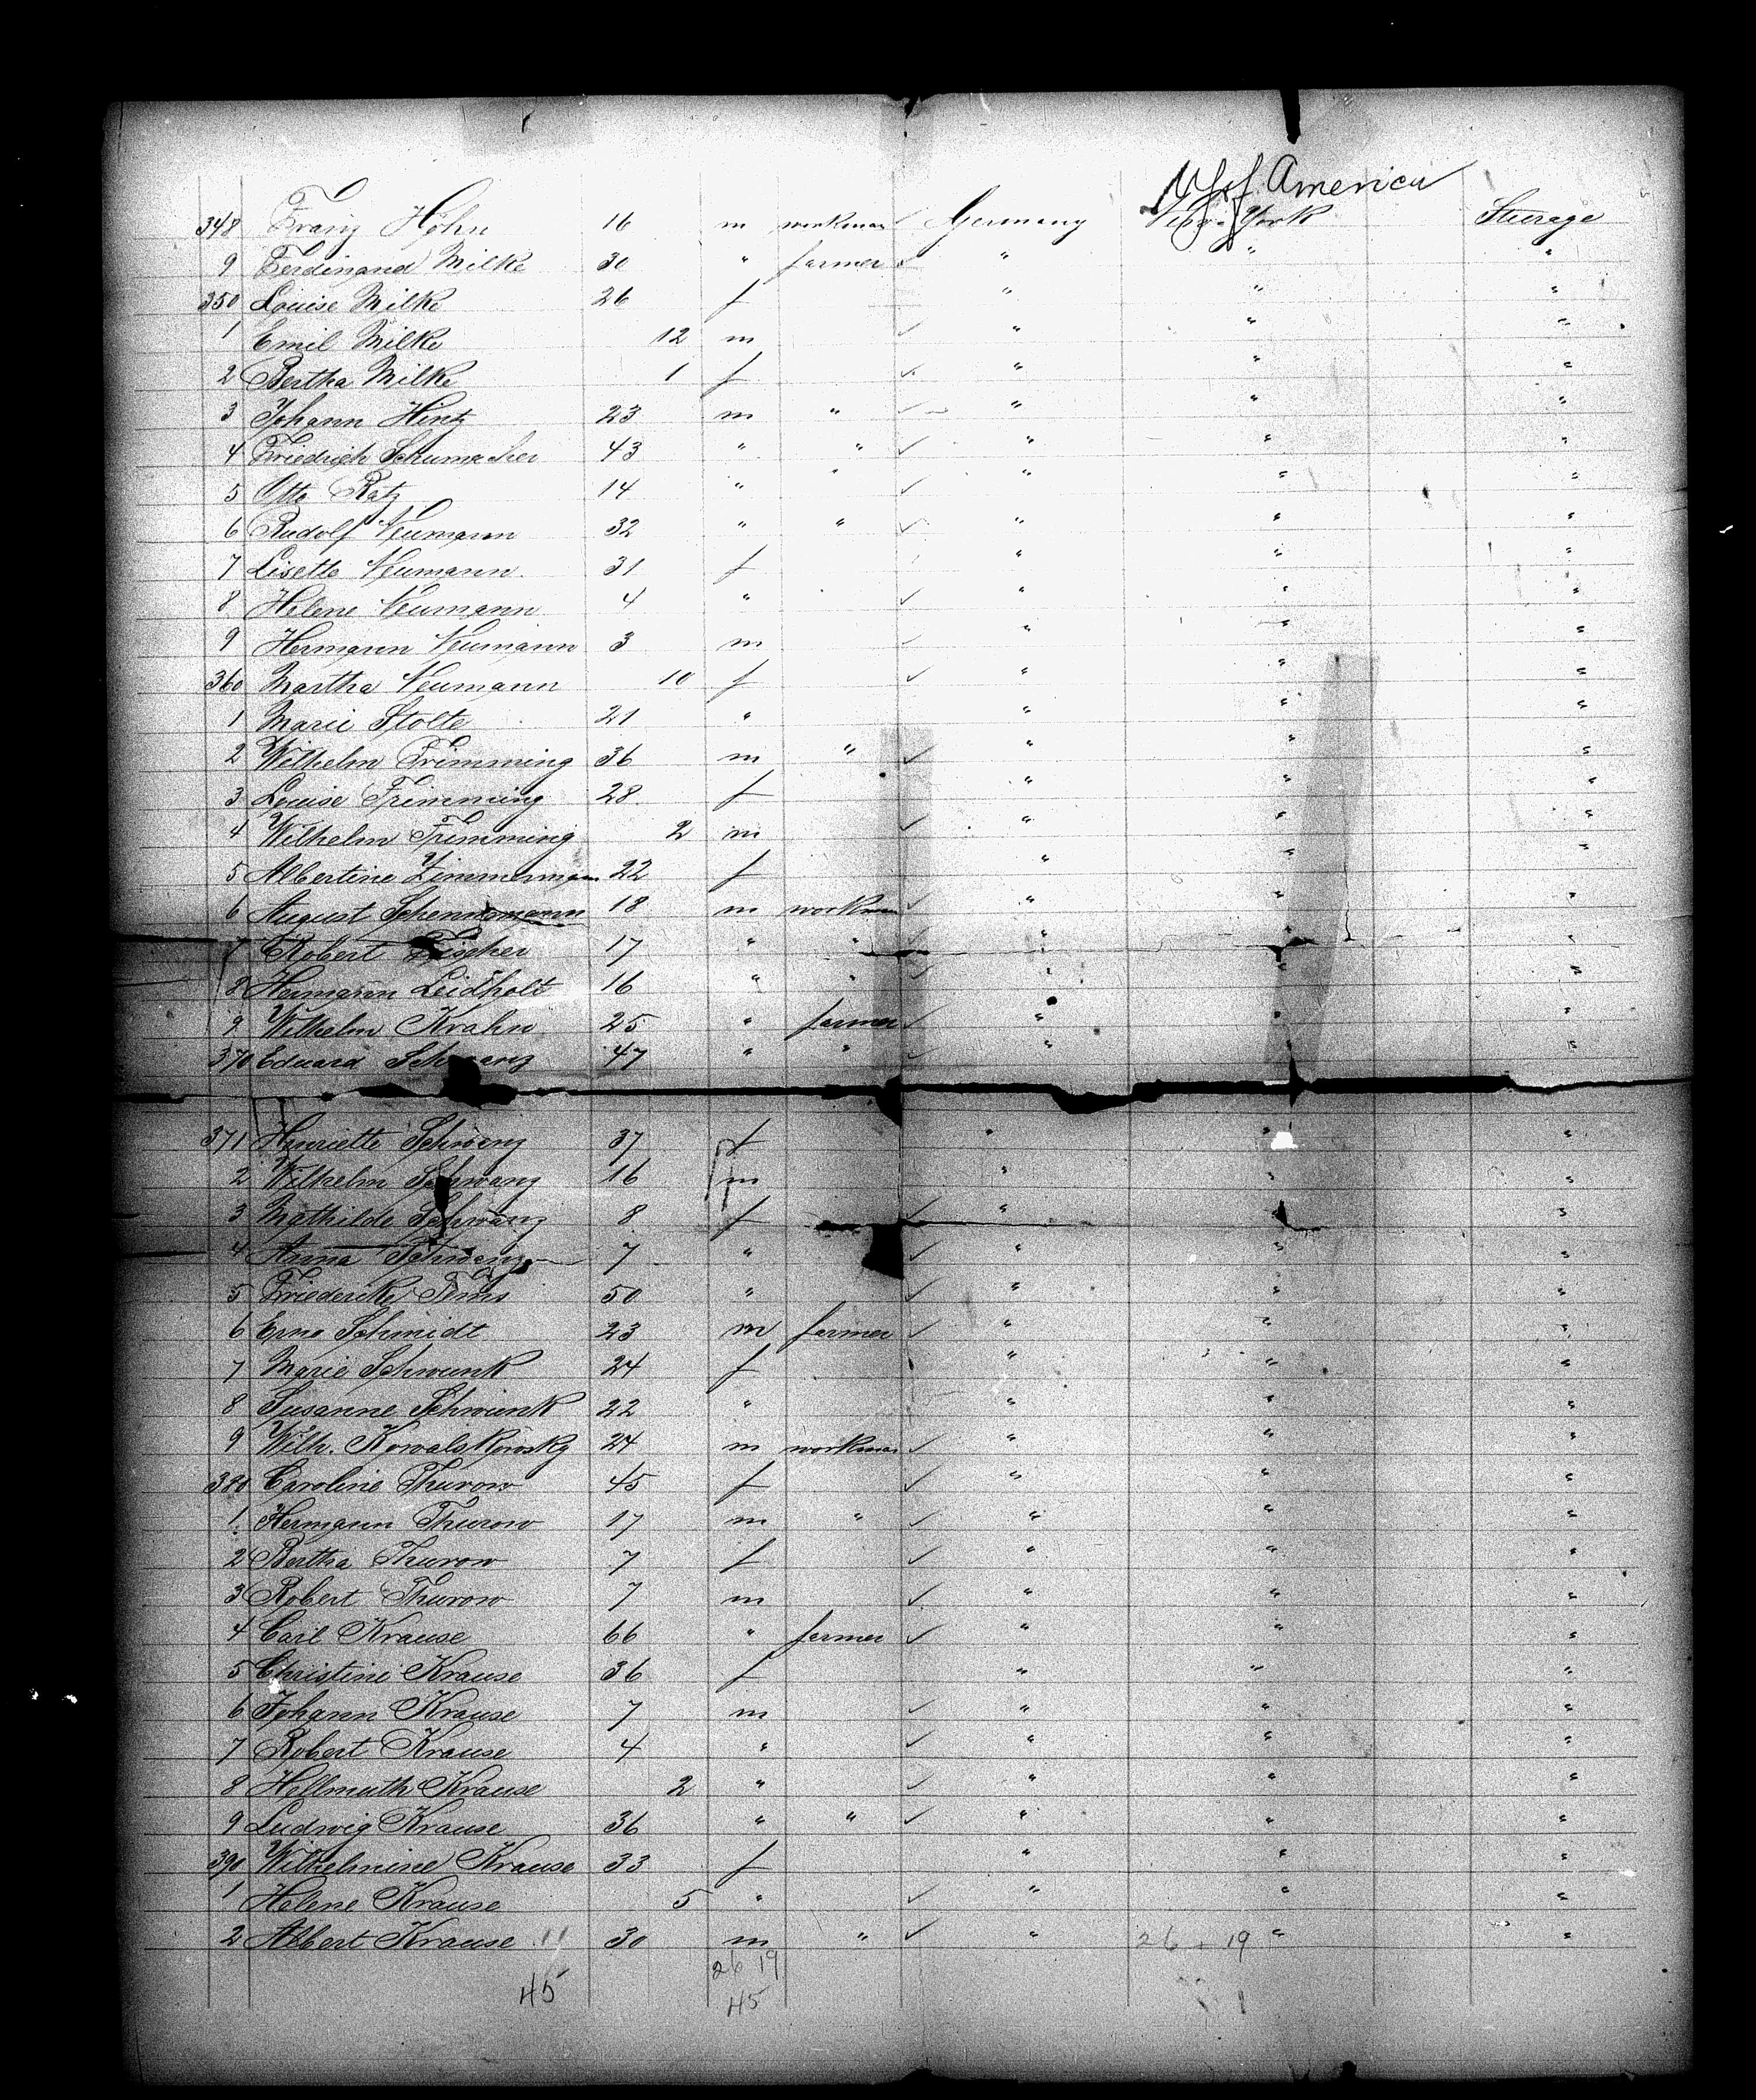 U S of America
348 Franz Höhn 16 m workman ✓ Germany New-York Steerage
9 Ferdinand Milke 30 " farmer ✓ " " "
350 Louise Milke 26 f " " "
1 Emil Milke 12 m ✓ " " "
2 Bertha Milke 1 f ✓ " " "
3 Johann Hintz 23 m " ✓ " " "
4 Friedrich Schumacher 43 " " ✓ " " "
5 Otto Ratz 14 " " ✓ " " "
6 Rudolf Neumann 32 " " ✓ " " "
7 Lisette Neumann 31 f " " "
8 Helene Neumann 4 " ✓ " " "
9 Hermann Neumann 3 m ✓ " " "
360 Martha Neumann 10 f ✓ " " "
1 Marie Stolte 21 " " " "
2 Wilhelm Frimming 36 m " ✓ " " "
3 Louise Frimming 28 f " " "
4 Wilhelm Frimming 2 m ✓ " " "
5 Albertine Zimmermann 22 f " " "
6 August 18 m workman ✓ " " "
7 Robert Fischer 17 " " ✓ " " "
8 Hermann Leidholt 16 " " ✓ " " "
9 Wilhelm Krahn 25 " farmer ✓ " " "
370 Eduard Schwanz 47 " " ✓ " " "
371 Henriette Schwanz 37 f " " "
2 Wilhelm Schwanz 16 m " " "
3 Mathilde Schwanz 8 f ✓ " " "
4 Anna Schwanz 7 " ✓ " " "
5 Friedericke Tims 50 " ✓ " " "
6 Erno Schmidt 23 m farmer ✓ " " "
7 Marie Schwunk 24 f " " "
8 Susanne Schwunk 22 " " " "
9 Wilh. Kowalskowsky 24 m workman ✓ " " "
380 Caroline Thurow 45 f ✓ " " "
1 Hermann Thurow 17 m " ✓ " " "
2 Bertha Thurow 7 f ✓ " " "
3 Robert Thurow 7 m ✓ " " "
4 Carl Krause 66 " farmer ✓ " " "
5 Christine Krause 36 f " " "
6 Johann Krause 7 m ✓ " " "
7 Robert Krause 4 " ✓ " " "
8 Hellmuth Krause 2 " ✓ " " "
9 Ludwig Krause 36 " " ✓ " " "
390 Wilhelmine Krause 33 f " " "
1 Helene Krause 5 " ✓ " " "
2 Albert Krause 11 30 m " ✓ " 26 + 19 " "
26 19
45 45